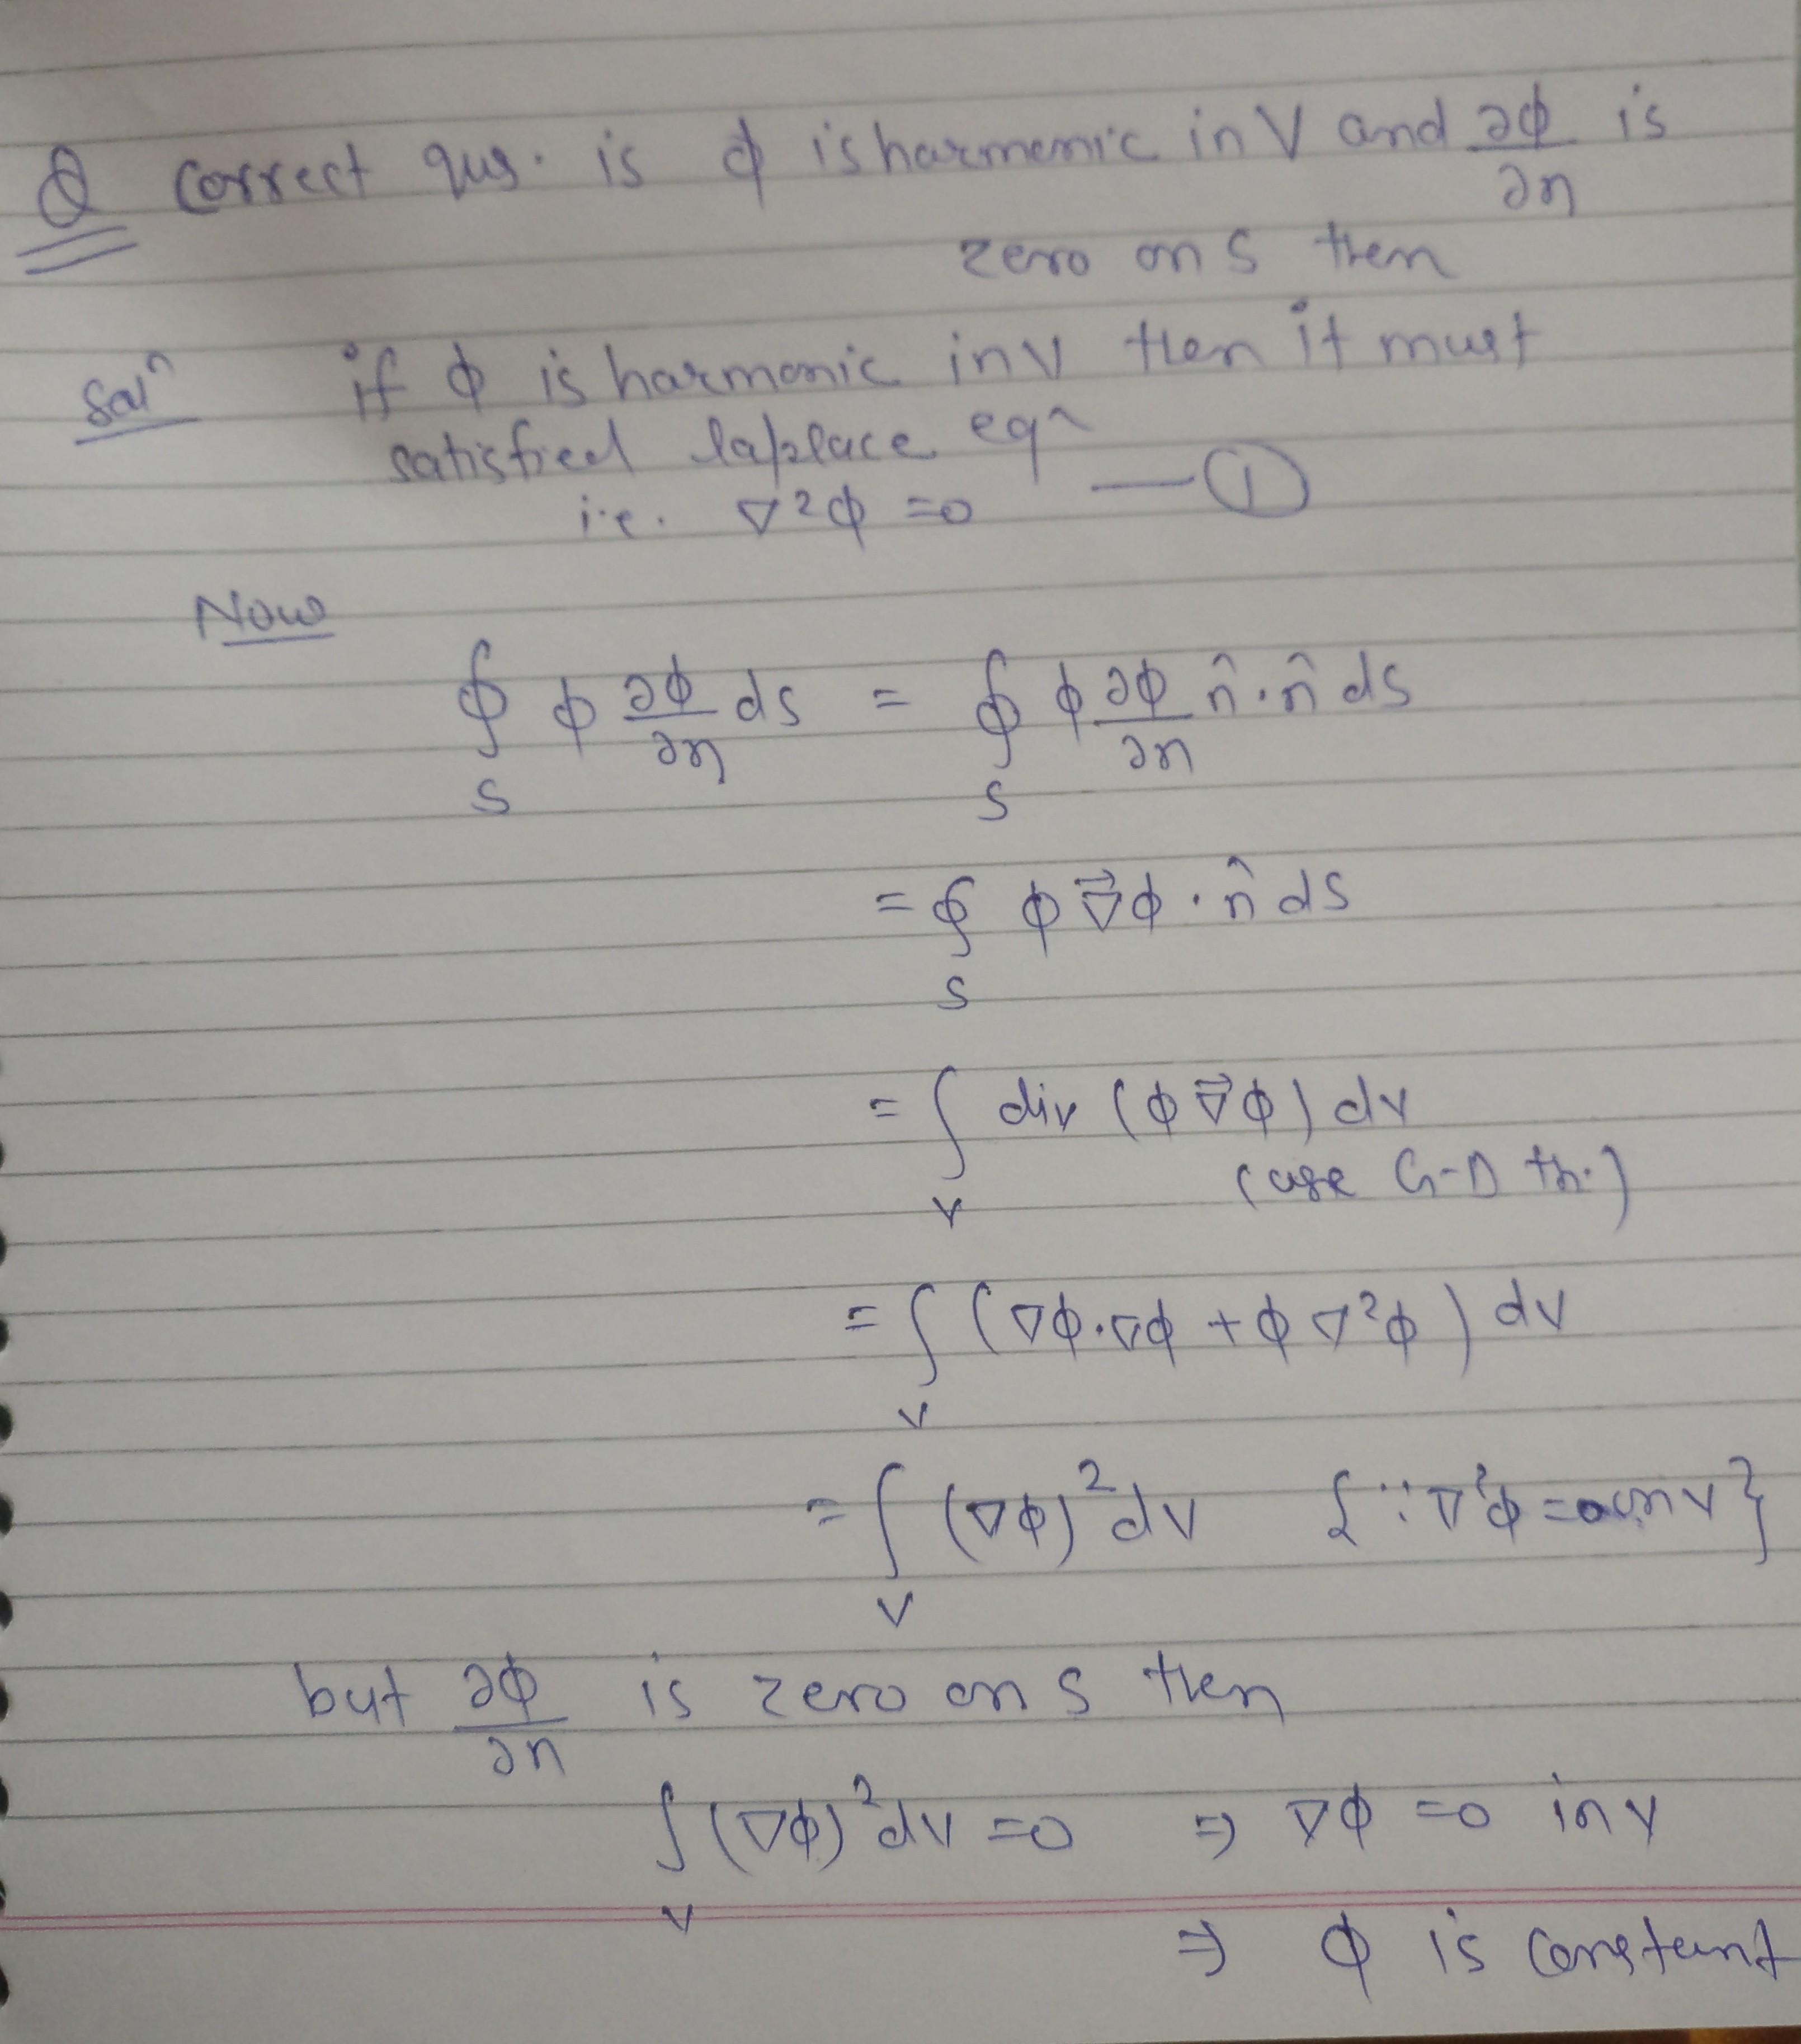 Q correct qus. is ϕ is harmonic in V and ∂ϕ/∂n is
zero on S then
Solⁿ if ϕ is harmonic in V then it must
satisfied laplace eqⁿ
i.e. ∇²ϕ =0 — ①
Now
∮_S ϕ ∂ϕ/∂n ds = ∮_S ϕ ∂ϕ/∂n n̂.n̂ ds
= ∮_S ϕ ∇⃗ϕ . n̂ ds
= ∫_V div (ϕ ∇⃗ϕ) dv
(use G-D th.)
= ∫_V (∇ϕ.∇ϕ + ϕ ∇²ϕ) dv
= ∫_V (∇ϕ)² dv {∵ ∇²ϕ =0 in v}
but ∂ϕ/∂n is zero on S then
∫_V (∇ϕ)² dv =0 ⇒ ∇ϕ =0 in v
⇒ ϕ is constant